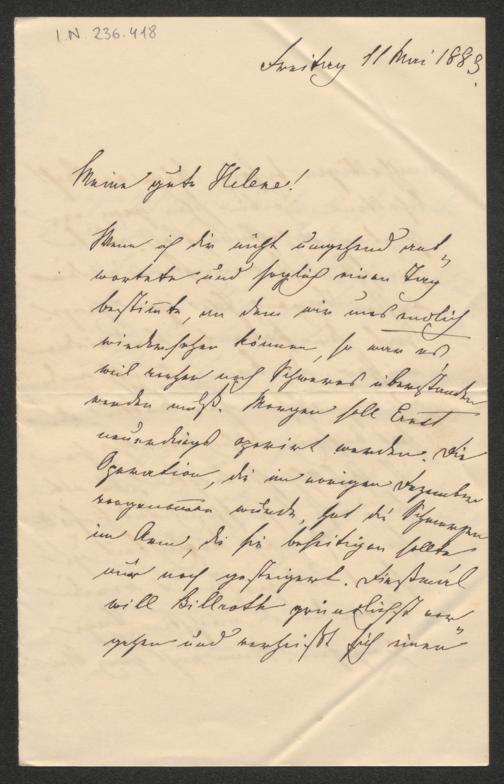 I.N. 236.418
Freitag 11 Mai 1883.
Meine gute Helene!
Wenn ich dir nicht umgehend ant„
wortete und sogleich einen Tag
bestim̅te, an dem wir uns endlich
wiedersehen können, so war es
weil vorher noch Schweres überstanden
werden muß. Morgen soll Ernst
neuerdings operirt werden. Die
Operation, die im vorigen Dezember
vorgenom̅en wurde, hat die Schmerzen
im Arm, die sie beseitigen sollte
nur noch gesteigert. Dießmal
will Billroth gründlichst vor
gehen und verheißt sich einen„